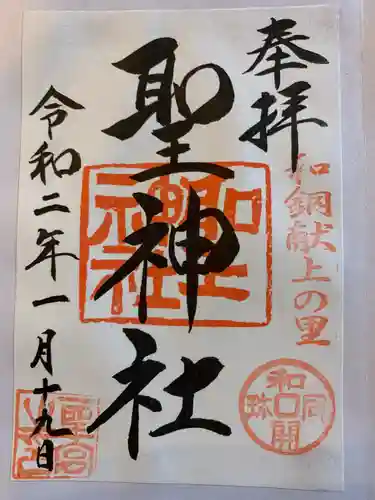 奉拝
和銅献上の里
和同開珎
聖神社
令和二年一月十九日